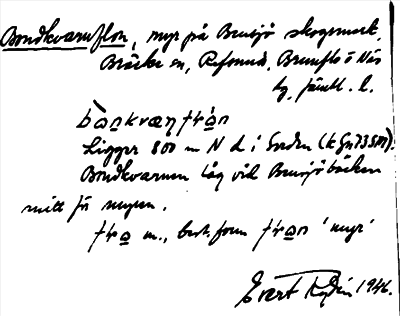 Bondkvarnflon, myr på Bensjö skogsmark,
Bräcke sn, Refsund, Brunflo o Näs
tg, Jämtl. l.
Ligger 800 m N d. i Enden (k Gn 735M).
Bondkvarnen låg vid Bensjöbäcken
mitt för myren.
m., best. form 'myr'
Evert 1946.